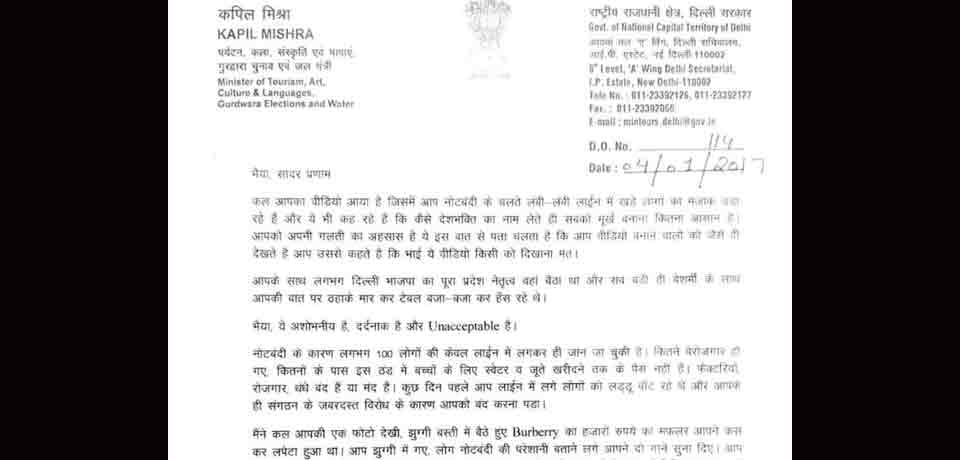 कपिल मिश्रा
KAPIL MISHRA
पर्यटन, कला, संस्कृति एवं भाषाएं,
गुरद्वारा चुनाव एवं जल मंत्री
Minister of Tourism, Art,
Culture & Languages,
Gurdwara Elections and Water
राष्ट्रीय राजधानी क्षेत्र, दिल्ली सरकार
Govt. of National Capital Territory of Delhi
तल 'ए' विंग, दिल्ली सचिवालय,
आई.पी. एस्टेट, नई दिल्ली-110002
Level, 'A' Wing Delhi Secretariat,
I.P. Estate, New Delhi-110002
Tele No. : 011-23392126, 011-23392177
Fax. : 011-23392066
E-mail : mintours.delhi@gov.in
D.O. No. 114
Date : 04/01/2017
भैया, सादर प्रणाम
कल आपका वीडियो आया है जिसमें आप नोटबंदी के चलते लंबी-लंबी लाईन में खड़े लोगों का मजाक उड़ा
रहे हैं और ये भी कह रहे हैं कि कैसे देशभक्ति का नाम लेते ही सबको मूर्ख बनाना कितना आसान है।
आपको अपनी गलती का अहसास है ये इस बात से पता चलता है कि आप वीडियो बनाने वालो को जैसे ही
देखते है आप उससे कहते है कि भाई ये वीडियो किसी को दिखाना मत।
आपके साथ लगभग दिल्ली भाजपा का पूरा प्रदेश नेतृत्व वहां बैठा था और सब बड़ी ही बेशर्मी के साथ
आपकी बात पर ठहाके मार कर टेबल बजा-बजा कर हँस रहे थे।
भैया, ये अशोभनीय है, दर्दनाक है और Unacceptable है।
नोटबंदी के कारण लगभग 100 लोगों की केवल लाईन में लगकर ही जान जा चुकी है। कितने बेरोजगार हो
गए, कितनों के पास इस ठंड में बच्चों के लिए स्वेटर व जूते खरीदने तक के पैसे नहीं हैं। फैक्टरियाँ,
रोजगार, धंधे बंद हैं या मंद है। कुछ दिन पहले आप लाईन में लगे लोगों को लड्डू बाँट रहे थे और आपके
ही संगठन के जबरदस्त विरोध के कारण आपको बंद करना पडा।
मैंने कल आपकी एक फोटो देखी, झुग्गी बस्ती में बैठे हुए Burberry का हजारों रुपये का मफलर आपने कस
कर लपेटा हुआ था। आप झुग्गी में गए, लोग नोटबंदी की परेशानी बताने लगे आपने दो गाने सुना दिए। आप